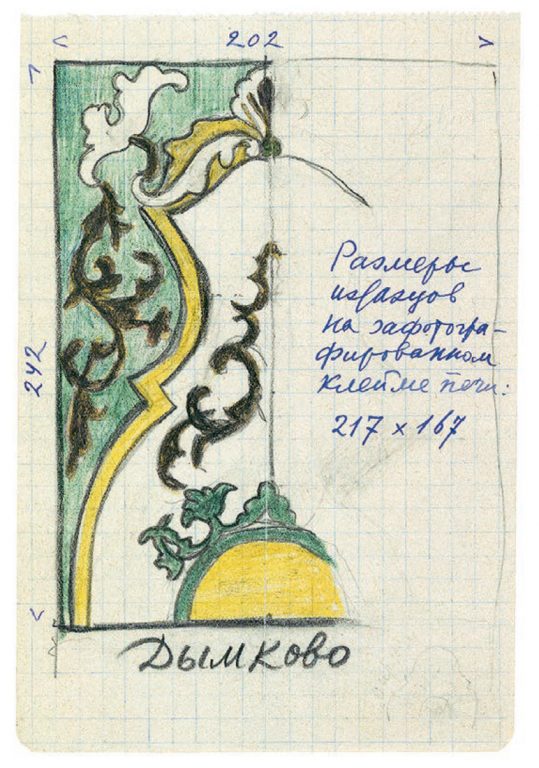 202
242
Размеры
изразцов
на зафотогра-
фированном
клейме печи:
217 х 167
Дымково